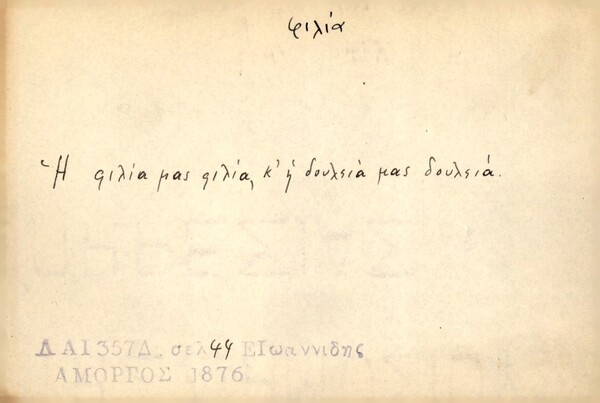 φιλία
Ἡ φιλία μας φιλία, κ' ἡ δουλειά μας δουλειά.
ΛΑΙ357Δ. σελ44 ΕΙωαννιδης
ΑΜΟΡΓΟΣ 1876